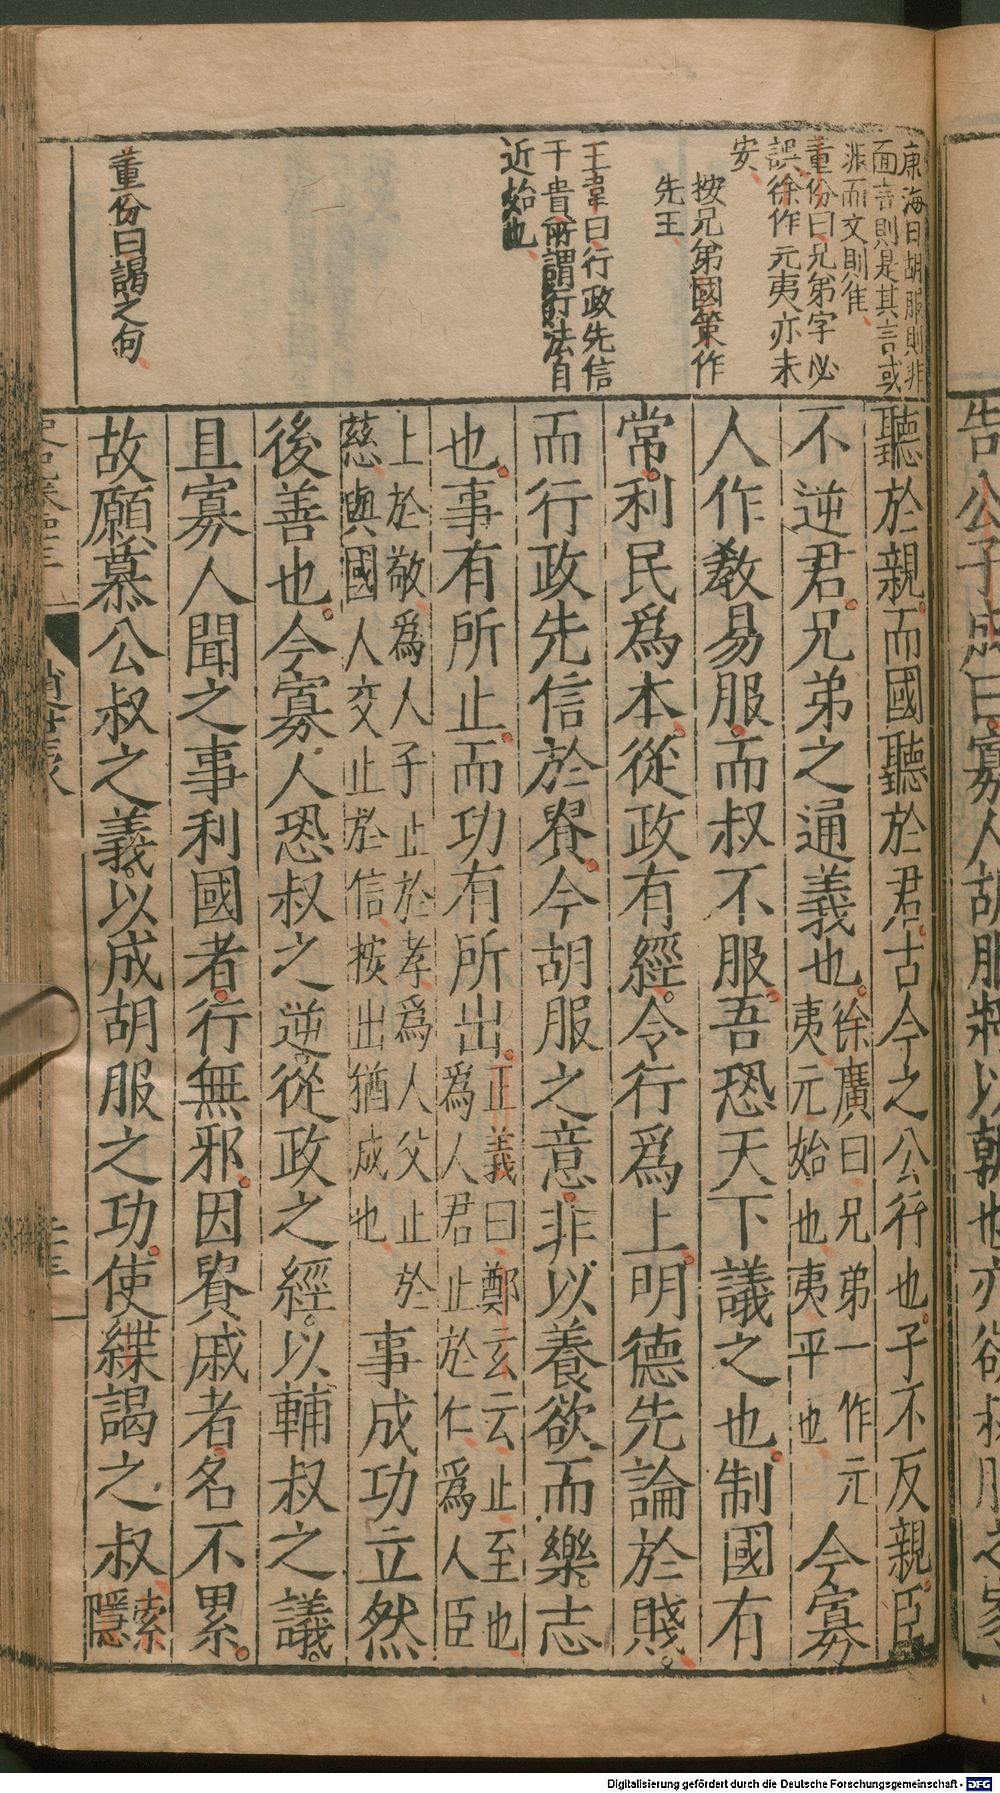 康海曰胡服則非
面言則是其言或
非而文則佳
董份曰兄弟字必
誤徐作元夷亦未
安
按兄弟國策作
先王
王韋曰行政先信
于貴所謂行法自
近始也
董份曰謁之句
告公子成曰寡人胡服將以朝也亦欲叔服之家
聽於親而國聽於君古今之公行也子不反親臣
不逆君兄弟之通義也徐廣曰兄弟一作元
夷元始也夷平也今寡
人作教易服而叔不服吾恐天下議之也制國有
常利民爲本從政有經令行爲上明德先論於賤
而行政先信於貴今胡服之意非以養欲而樂志
也事有所止而功有所出正義曰鄭玄云止至也
爲人君止於仁爲人臣
上於敬爲人子止於孝爲人父止於
慈與國人交止於信按出猶成也事成功立然
後善也今寡人恐叔之逆從政之經以輔叔之議
且寡人聞之事利國者行無邪因貴戚者名不累
故願慕公叔之義以成胡服之功使緤謁之叔索
隱
趙世家
Digitalisierung gefördert durch die Deutsche Forschungsgemeinschaft - DFG